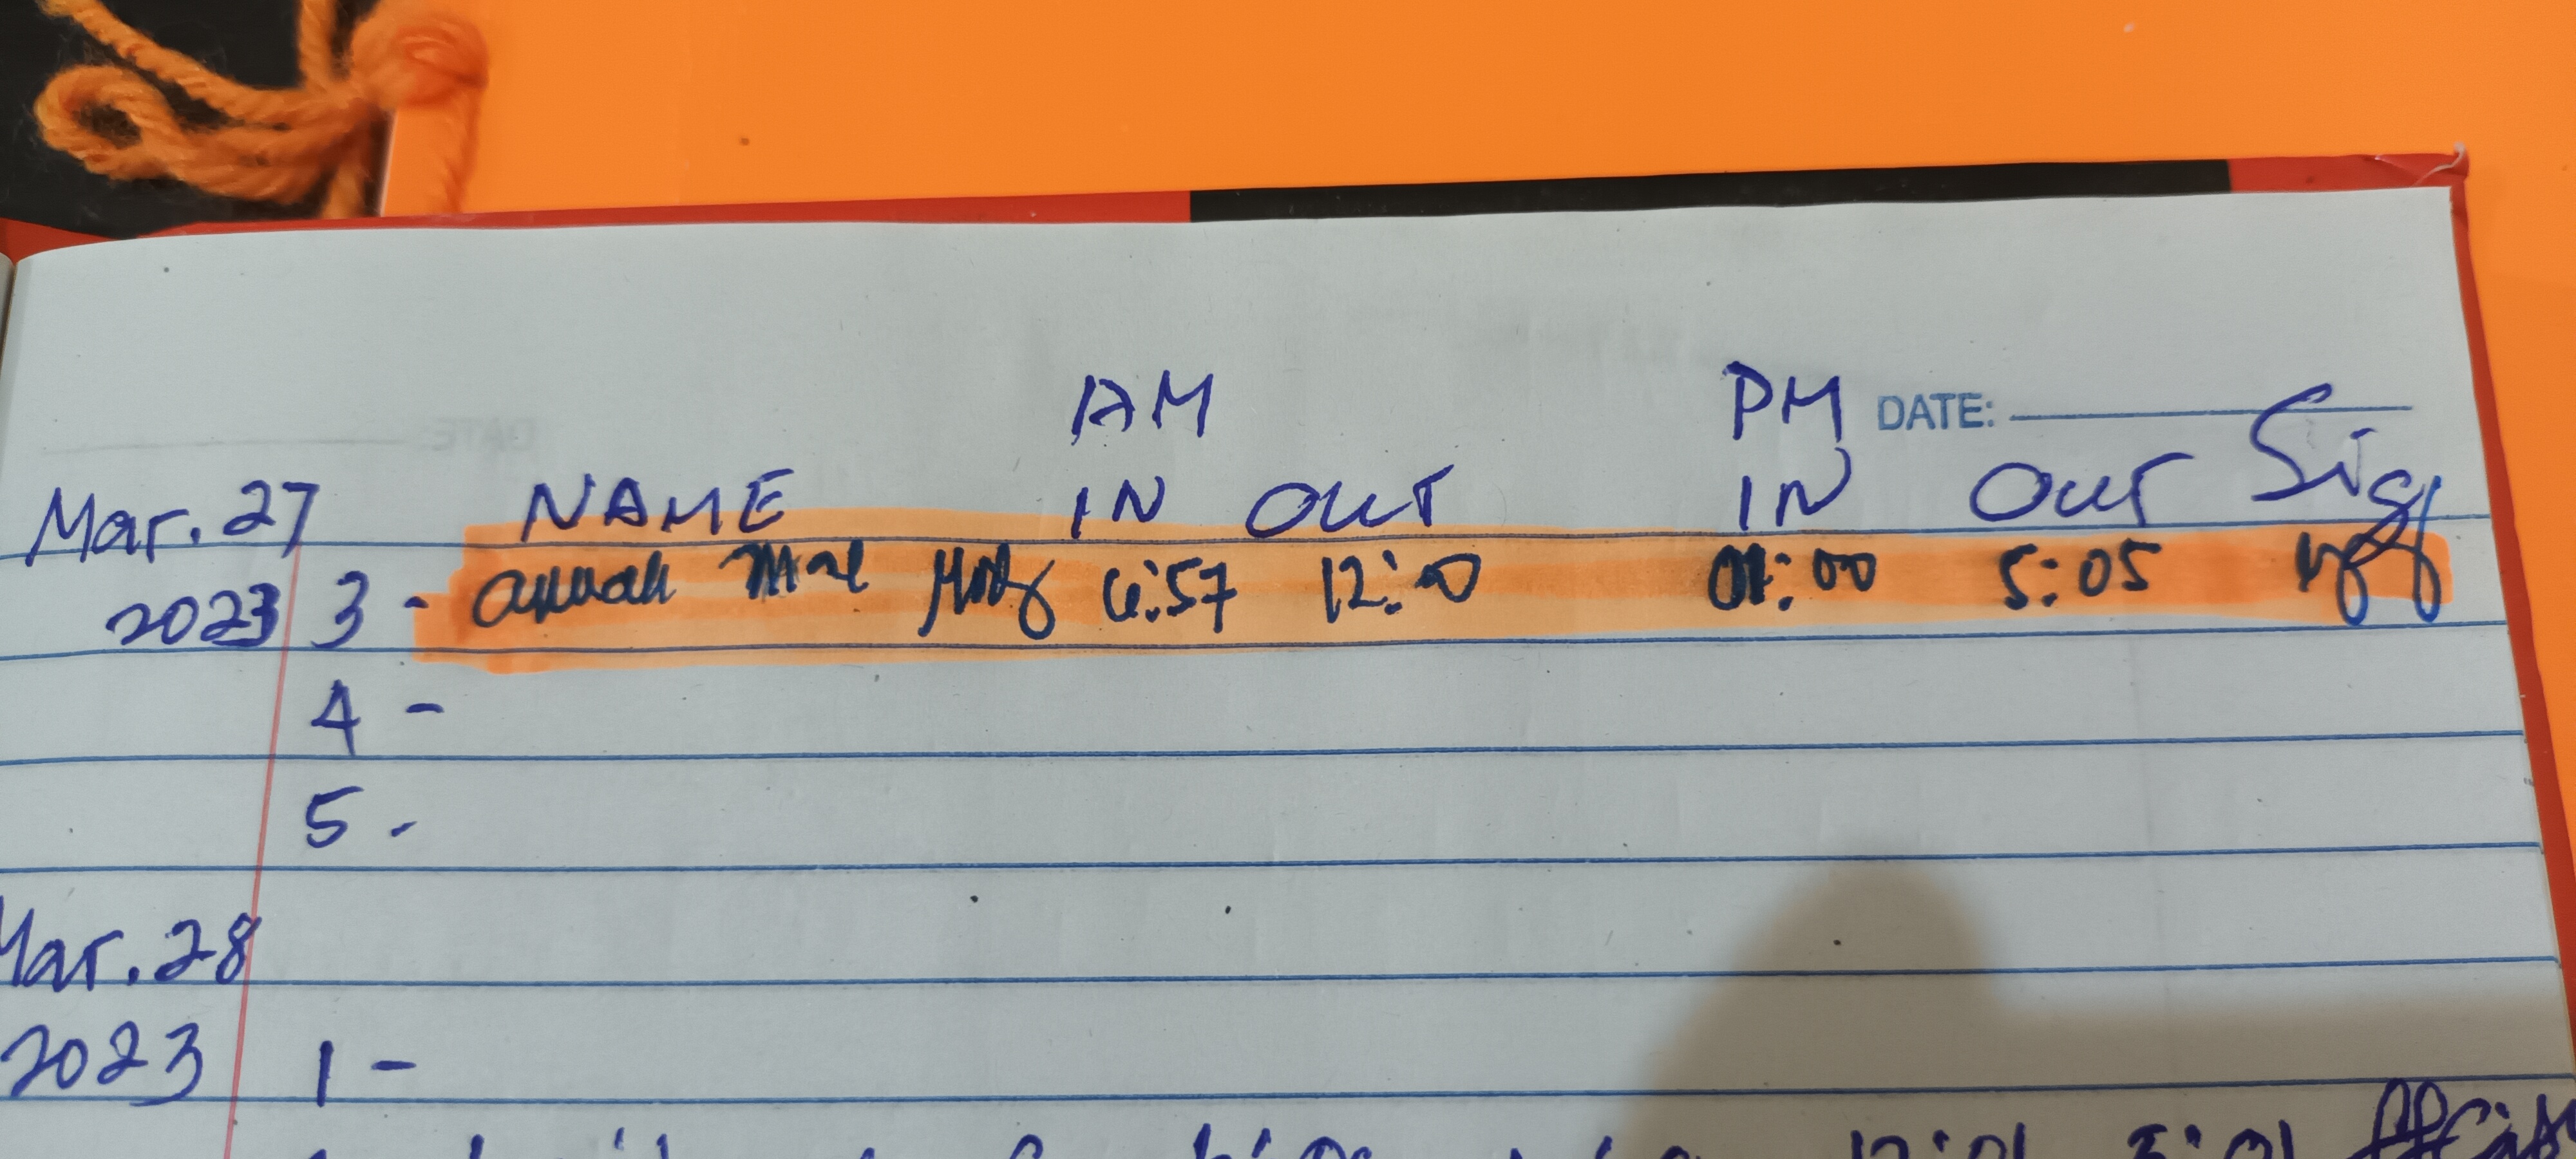 AM PM DATE:
Mar. 27 NAME IN OUT IN OUT Sig
2023 3 - 6:57 12:00 01:00 5:05
4 -
5 -
Mar. 28
2023 1 -